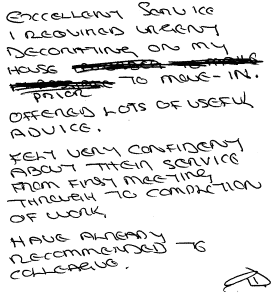 EXCELLENT SERVICE
I REQUIRED URGENT
DECORATING ON MY
HOUSE TO MOVE-IN.
PRIOR
OFFERED LOTS OF USEFUL
ADVICE.
FELT VERY CONFIDENT
ABOUT THEIR SERVICE
FROM FIRST MEETING
THROUGH TO COMPLETION
OF WORK.
HAVE ALREADY
RECOMMENDED TO
COLLEAGUE.